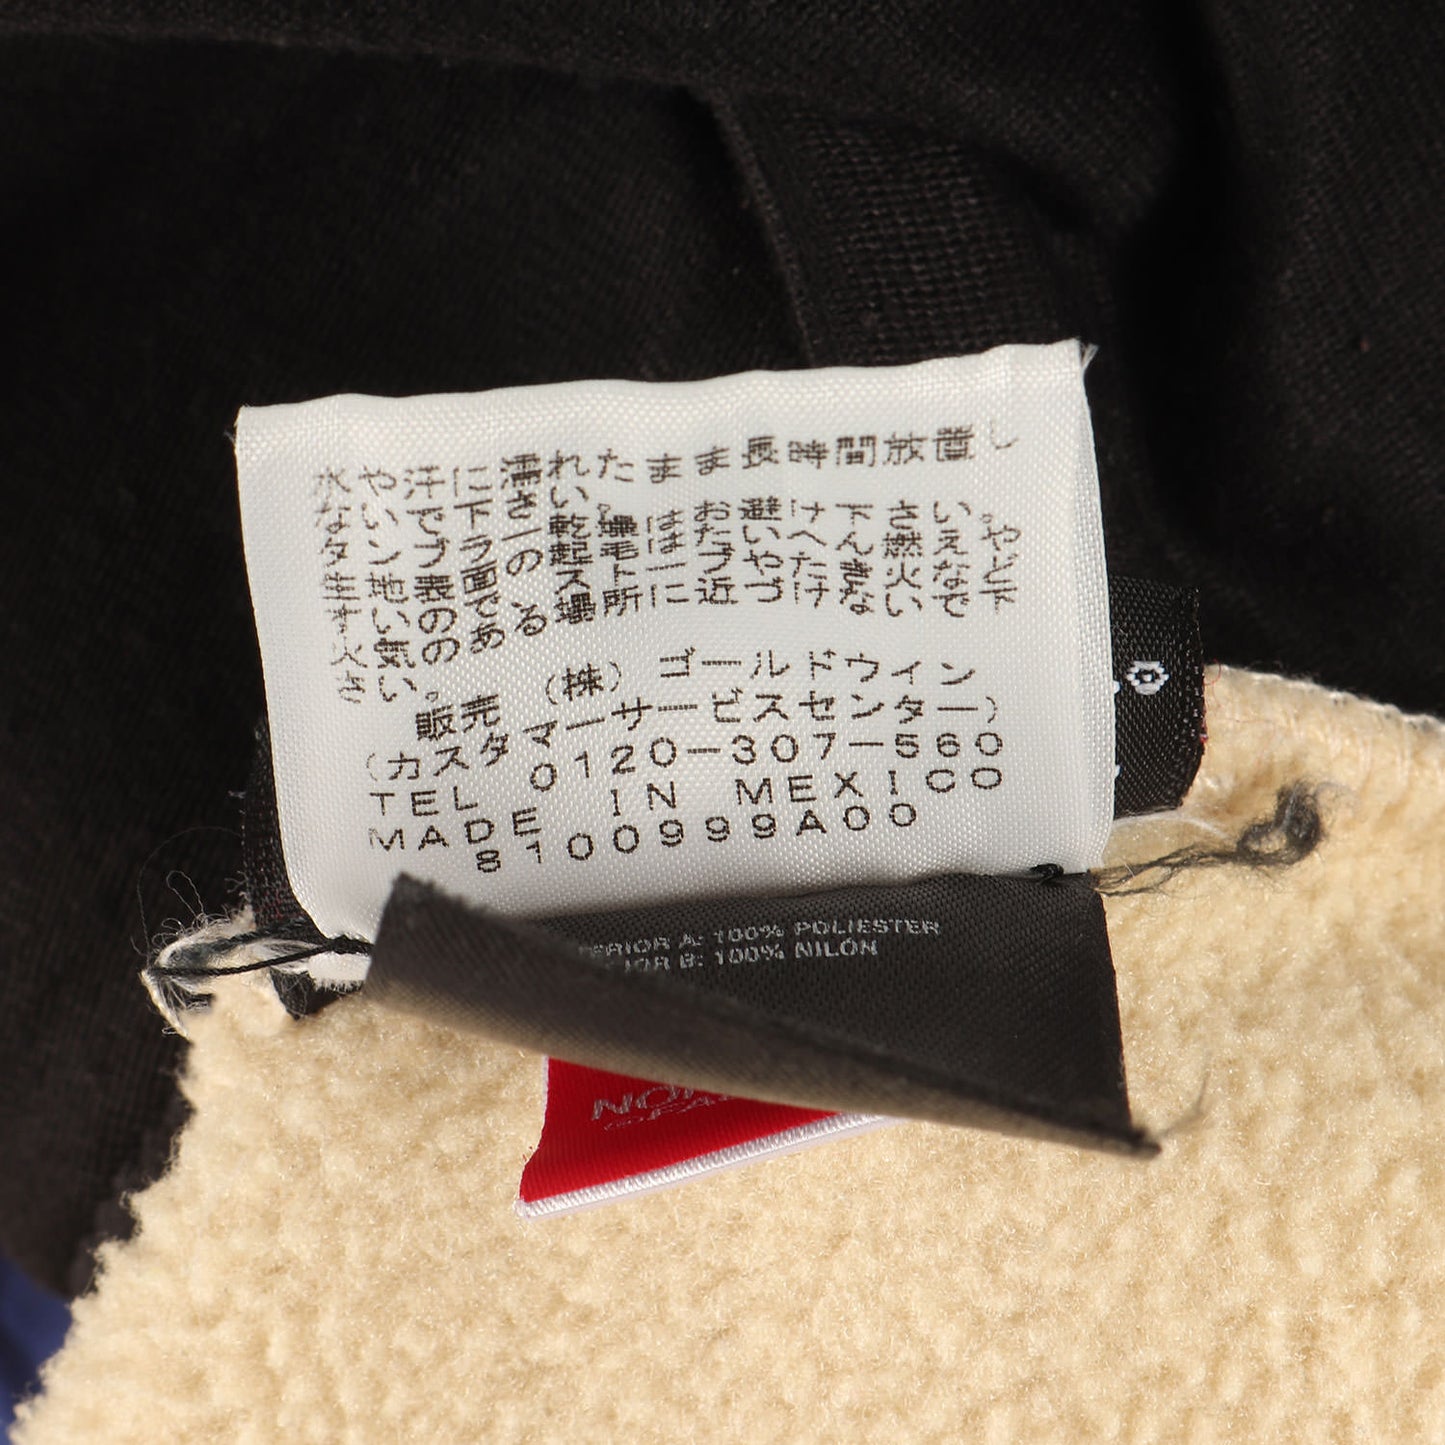 水や汗に濡れたまま長時間放置し
ないで下さい。
タンブラー乾燥はお避け下さい。
生地表面の起毛はたいへん燃えや
すいので、ストーブやたき火など
火気のある場所に近づけないで下
さい。
販売 (株) ゴールドウイン
(カスタマーサービスセンター)
TEL 0120-307-560
MADE IN MEXICO
8100999A00
ERIOR A: 100% POLIESTER
IOR B: 100% NILÓN
NOR